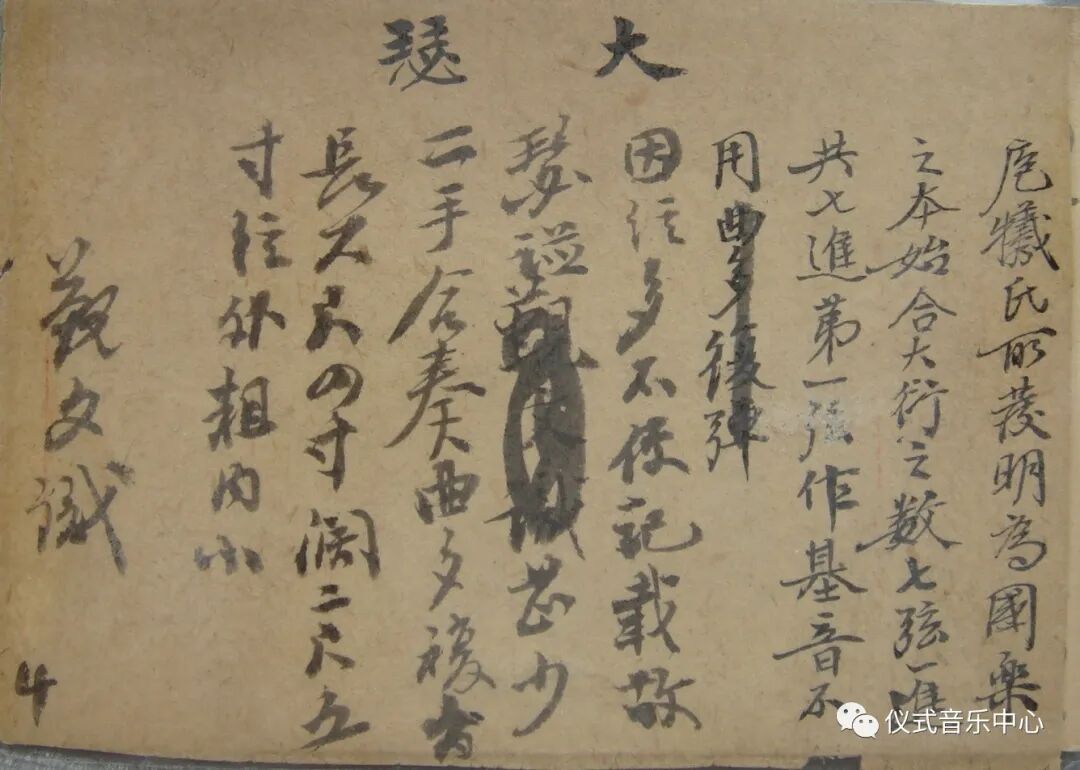 大瑟
庖犧氏所發明為國樂
之本始合大衍之数七弦一進
共七進第一弦作基音不
用曲多復彈
因弦多不便記載故
瑟譜甚少
二手合奏曲多複音
長八尺四寸阔二尺五
寸弦外粗内小
觐文識
4
仪式音乐中心